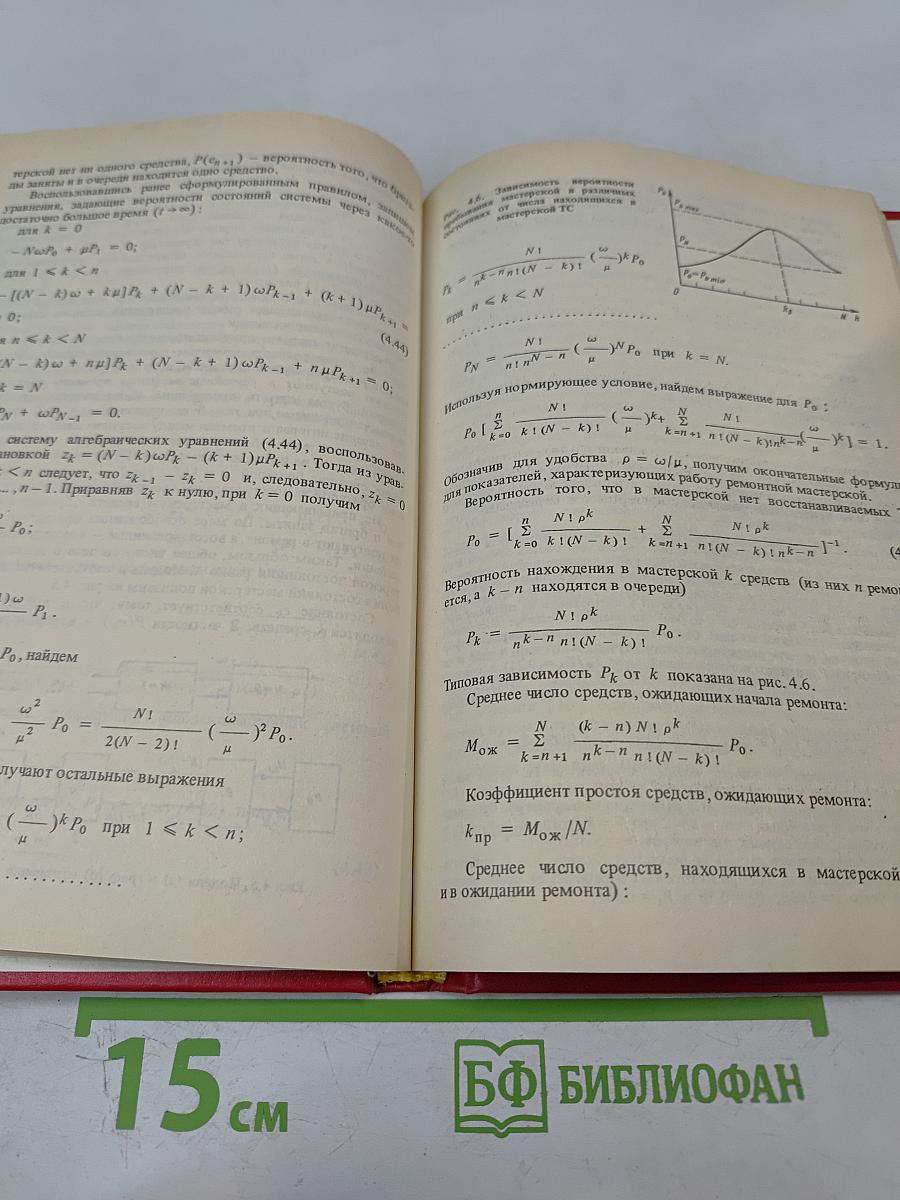 терской нет ни одного средства, P(eₙ₊₁) — вероятность того, что брига-
ды заняты и в очереди находится одно средство.
Воспользовавшись ранее сформулированным правилом, запишем
уравнения, задающие вероятности состояний системы через какое-то
достаточно большое время (t → ∞):
для k = 0
−NωP₀ + μP₁ = 0;
для 1 ⩽ k < n
−[(N − k)ω + kμ]Pₖ + (N − k + 1)ωPₖ₋₁ + (k + 1)μPₖ₊₁ =
0;
(4.44)
я n ⩽ k < N
(N − k)ω + nμ]Pₖ + (N − k + 1)ωPₖ₋₁ + nμPₖ₊₁ = 0;
k = N
P_N + ωP_N₋₁ = 0.
систему алгебраических уравнений (4.44), воспользовав-
ановкой zₖ = (N − k)ωPₖ − (k + 1)μPₖ₊₁. Тогда из урав-
k < n следует, что zₖ₋₁ − zₖ = 0 и, следовательно, zₖ = 0
..., n − 1. Приравняв zₖ к нулю, при k = 0 получим
P₀;
1)ω P₁.
P₀, найдем
ω²/μ² P₀ = N!/(2(N − 2)!) (ω/μ)²P₀.
лучают остальные выражения
(ω/μ)ᵏP₀ при 1 ⩽ k < n;
.............
Рис. 4.6. Зависимость вероятности
пребывания мастерской в различных
состояниях от числа находящихся в
мастерской ТС
Pₖ
Pₖ max
P_N
P₀=Pₖ min
0
N k
Pₖ = N!/(nᵏ⁻ⁿn!(N − k)!) (ω/μ)ᵏP₀
при n ⩽ k < N
.............................
P_N = N!/(n! nᴺ⁻ⁿ) (ω/μ)ᴺP₀ при k = N.
Используя нормирующее условие, найдем выражение для P₀:
P₀ [ Σₖ₌₀ⁿ N!/(k!(N − k)!) (ω/μ)ᵏ + Σₖ₌ₙ₊₁ᴺ N!/(n!(N − k)!nᵏ⁻ⁿ) (ω/μ)ᵏ] = 1.
Обозначив для удобства ρ = ω/μ, получим окончательные формулы
для показателей, характеризующих работу ремонтной мастерской.
Вероятность того, что в мастерской нет восстанавливаемых
P₀ = [ Σₖ₌₀ⁿ N!ρᵏ/(k!(N − k)!) + Σₖ₌ₙ₊₁ᴺ N!ρᵏ/(n!(N − k)!nᵏ⁻ⁿ) ]⁻¹. (4
Вероятность нахождения в мастерской k средств (из них n ремон
ется, а k − n находятся в очереди)
Pₖ = N!ρᵏ/(nᵏ⁻ⁿ n!(N − k)!) P₀.
Типовая зависимость Pₖ от k показана на рис. 4.6.
Среднее число средств, ожидающих начала ремонта:
Mож = Σₖ₌ₙ₊₁ᴺ (k − n)N!ρᵏ/(nᵏ⁻ⁿ n!(N − k)!) P₀.
Коэффициент простоя средств, ожидающих ремонта:
kпр = Mож/N.
Среднее число средств, находящихся в мастерской
и в ожидании ремонта):
15 см
БФ БИБЛИОФАН